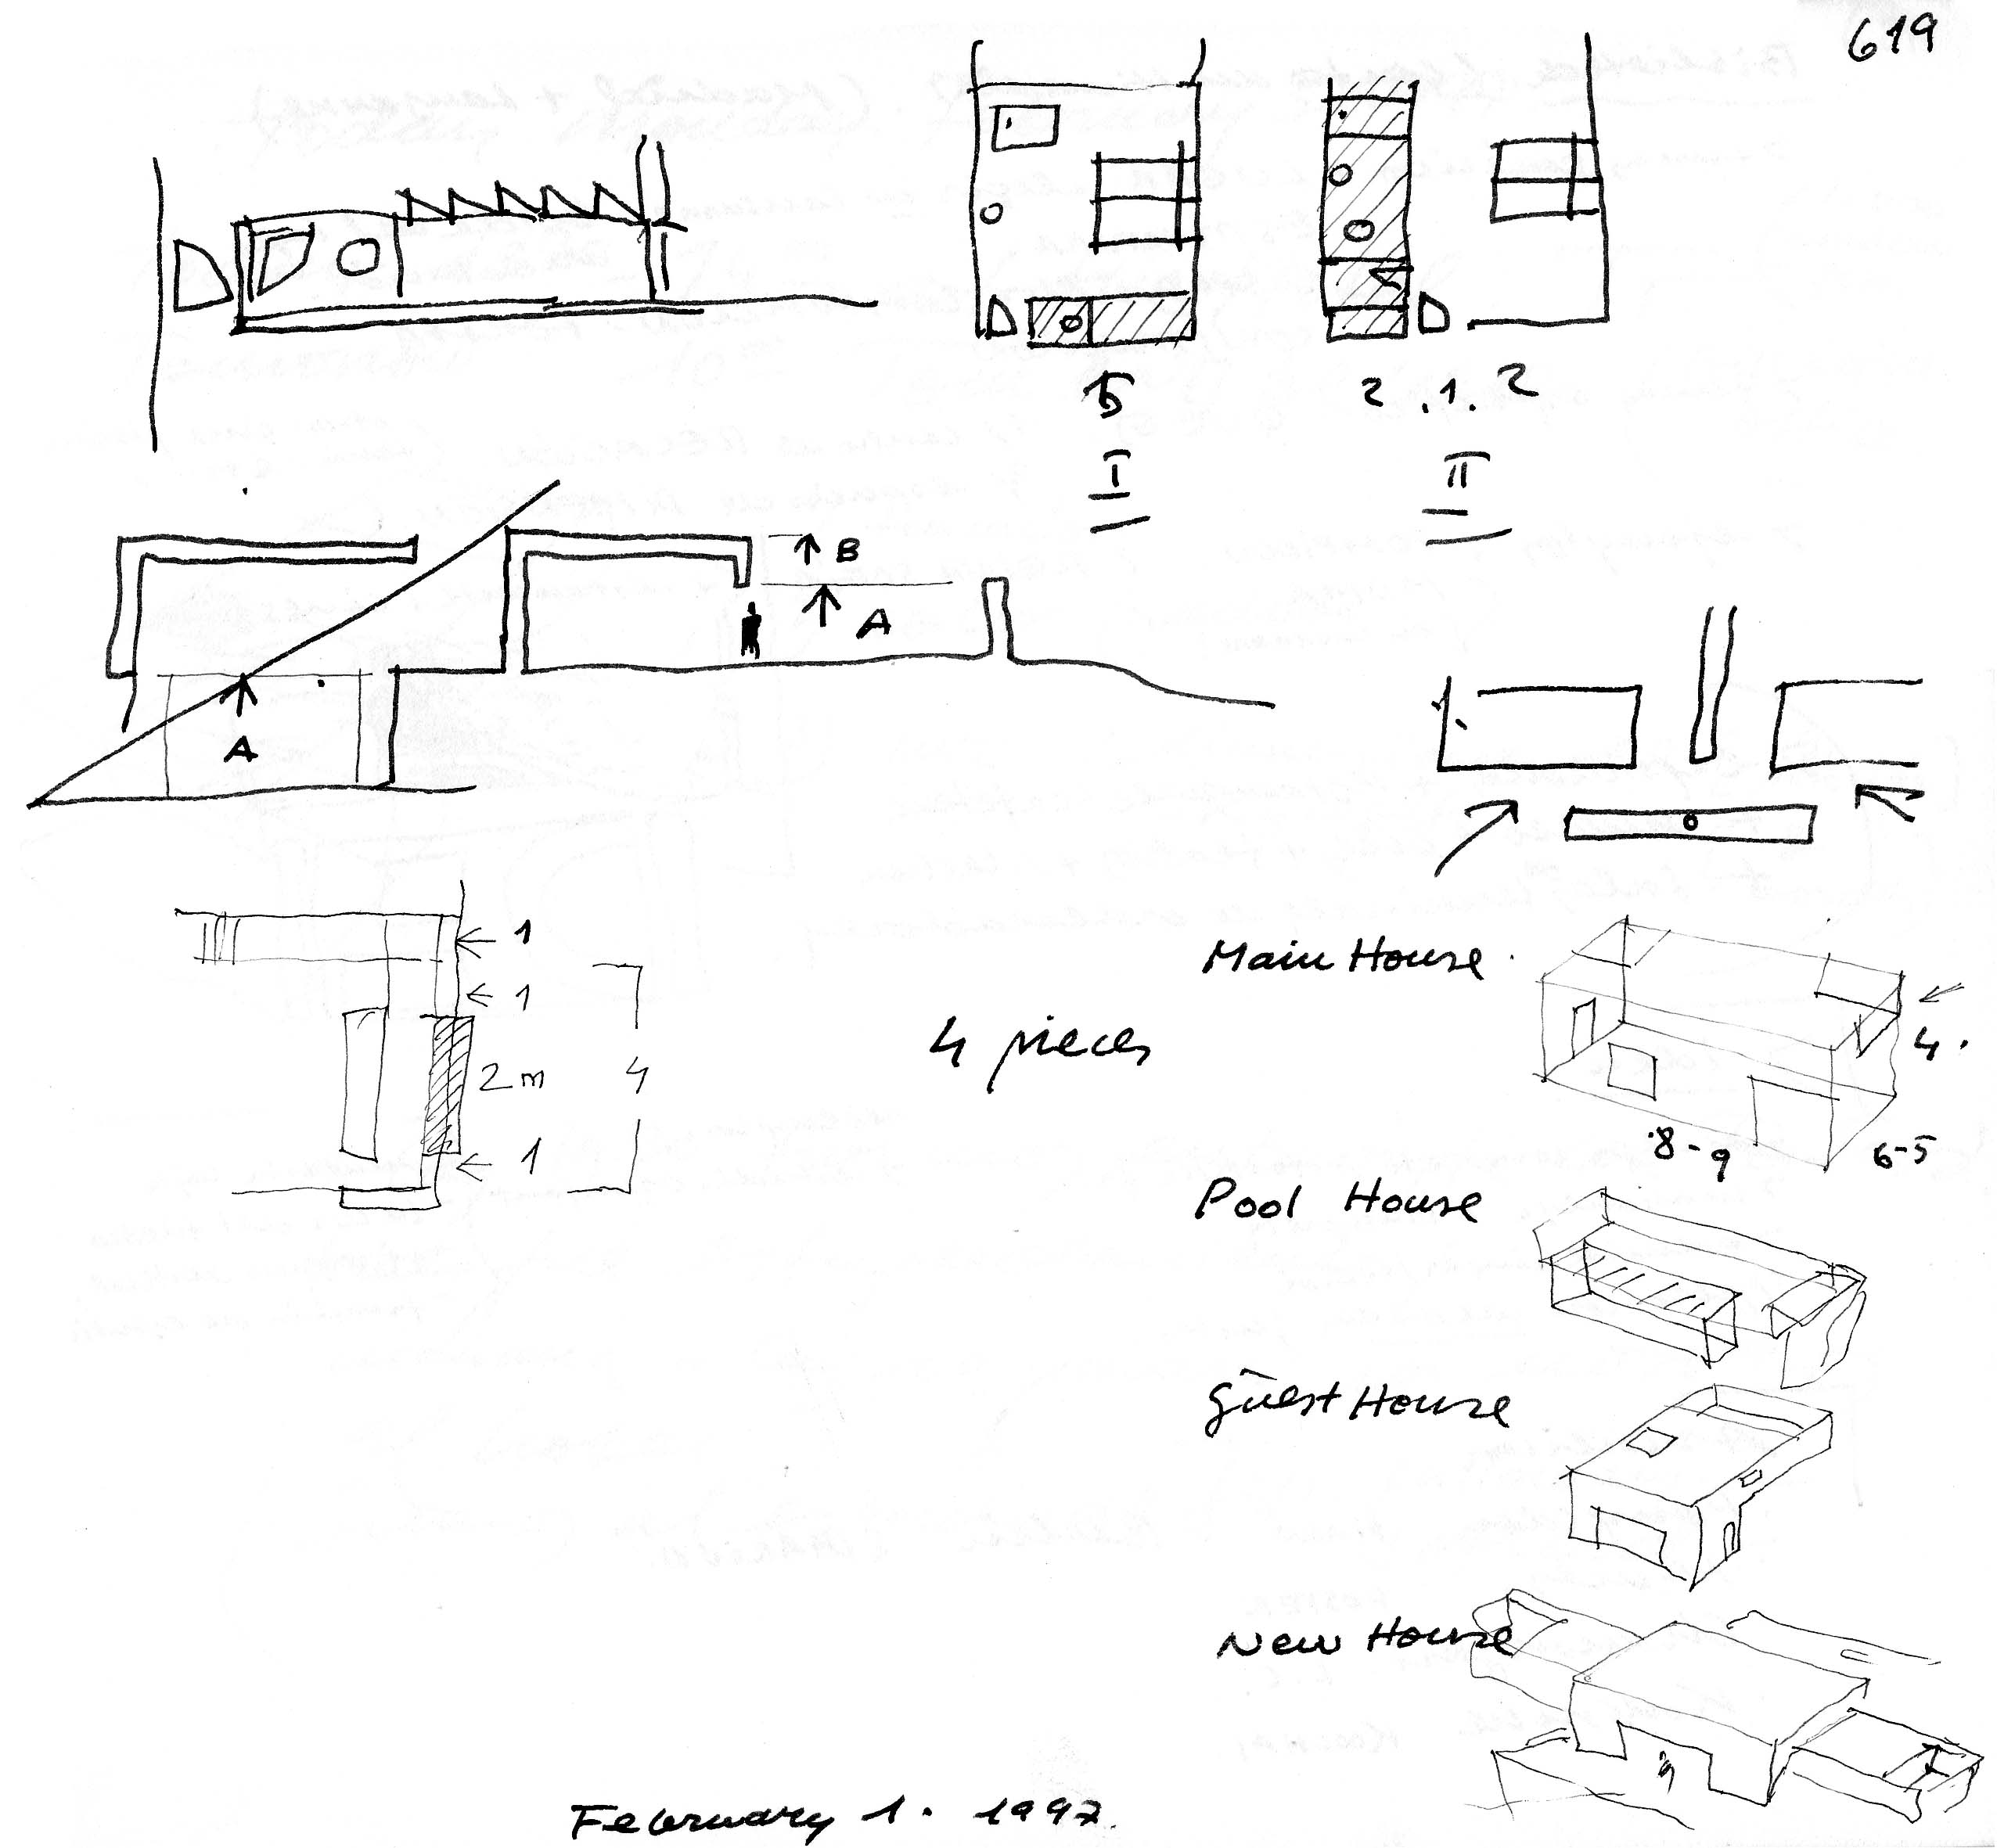 619
5
2 .1. 2
I
II
B
A
A
1
1
2m
4
1
4 pieces
Main House
4.
8-9
6-5
Pool House
Guest House
New House
February 1. 1997.